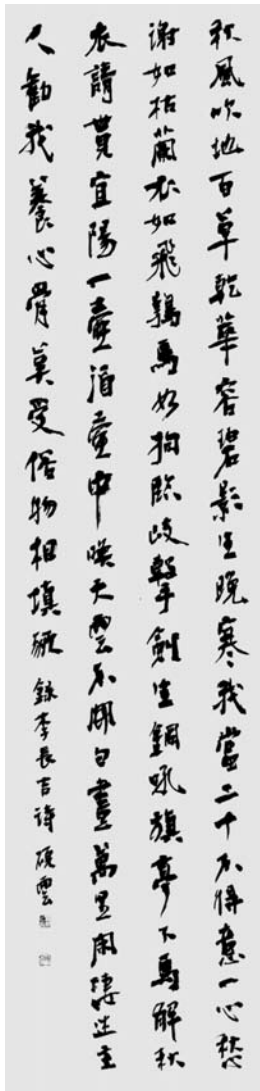 秋風吹地百草乾華容碧影生晚寒我當二十不得意一心愁
謝如枯蘭衣如飛鶉馬如狗臨歧擊劍生銅吼旗亭下馬解秋
衣請貰宜陽一壺酒壺中喚天雲不開白晝萬里閑淒迷主
人勸我養心骨莫受俗物相填豗 錄李長吉詩 雲